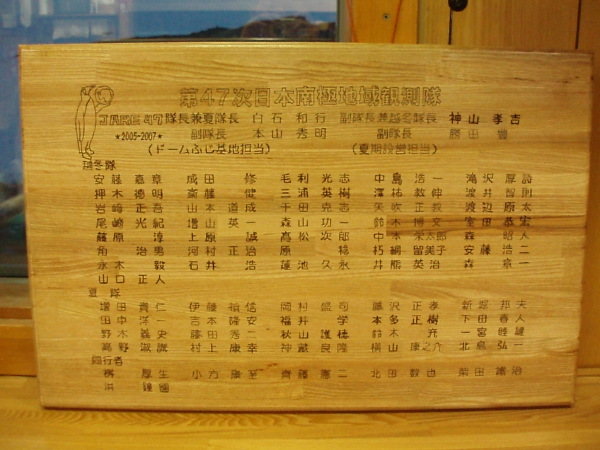 第47次日本南極地域観測隊
JARE 47 隊長兼夏隊長 白石 和行 副隊長兼越冬隊長 神山 孝吉
★2005-2007★ 副隊長 本山 秀明 副隊長 勝田 豊
(ドームふじ基地担当) (夏期設営担当)
越冬隊
安藤 嘉章 成田 修 毛利 光志 中島 浩一 滝沢 厚詩
押木 徳明 斎藤 健 三浦 英樹 澤柿 教伸 渡井 智則
岩崎 正吾 山本 道成 千田 克志 矢吹 正教 渡辺 原太
尾崎 光紀 増山 功一 鈴木
藤原 淳 上原 誠 高松
角 治男 河村 正治 原 稔 朽網 留美子 安藤 浩二
永木 毅 石井 浩 蓮池 久永 井熊 英治 森 章一
山口 正人
夏 隊
増田 貴仁 伊藤 禎信 岡村 盛司 藤沢 正孝 新堀 邦夫
田中 洋一 吉本 隆安 福井 学 本多 正樹 下田 春人
野木 義史 藤田 秀二 秋山 護 鈴木 充 一宮 雄一
高野 淑識 村上 康幸 神蔵 良隆 横山 康之介 北島 弘一
同行者
橘 厚生 小方 康至 齊藤 憲二 北田 数也 柴田 鉄治
洪 鐘國